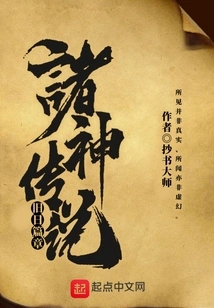 諸神传说
旧日篇章
作者◎抄书大师
所见并非真实，所闻亦非虚幻。
起点中文网